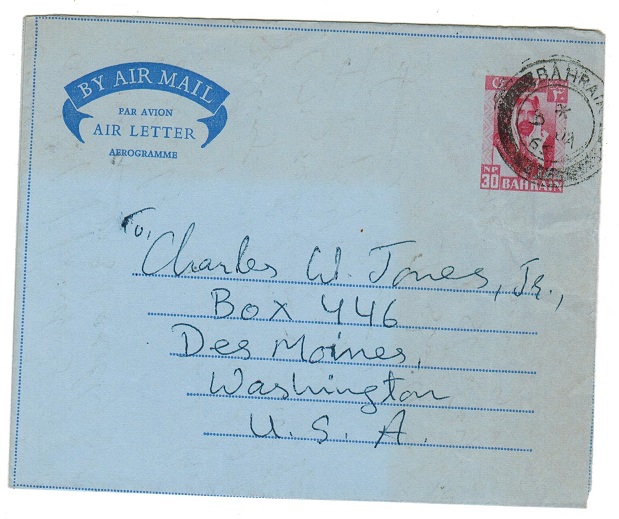 BY AIR MAIL
PAR AVION
AIR LETTER
AEROGRAMME
BAHRAIN
JA
NP
30 BAHRAIN
To,
Charles W. Jones, Jr.,
Box 446
Des Moines,
Washington
U. S. A.